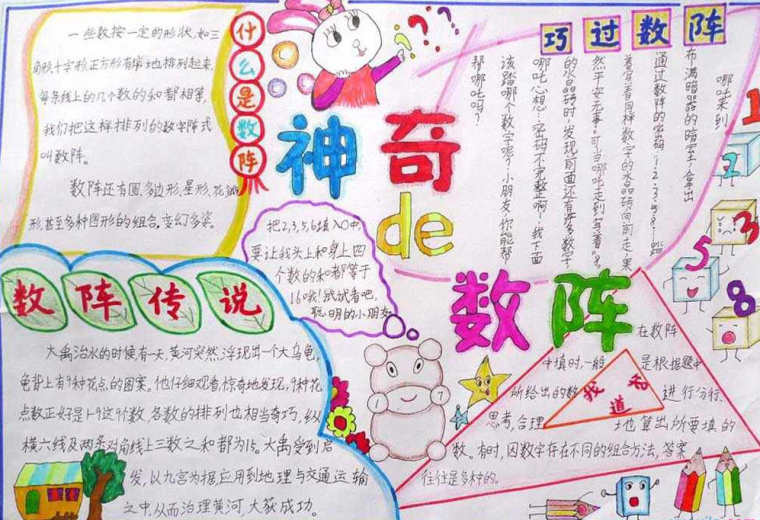 什么是数阵
一些数按一定的形状,如三
角形十字形正方形有序地排列起来,
每条线上的几个数的和都相等,
我们把这样排列的数字阵式
叫数阵。
数阵还有圆,多边形,星形,花瓣
形,甚至多种图形的组合,变幻多姿。
神奇
de
数阵
巧过数阵
哪吒来到
布满暗器的暗室,拿出
通过数阵的密码
着宫看同样数字的水晶砖间前走,果
然平安无事。可当哪吒走到写着
的水晶砖时,发现前面还有许多数字
哪吒心想:密码不完整啊!我下面
该踏哪个数字呢?小朋友,你能帮
帮哪吒吗?
1
2
3
5
8
把2,3,5,6填入○中
要让我头上和身上四
个数的和都等于
16哦!试试看吧,
聪明的小朋友
1
7
数阵传说
大禹治水的时候有一天,黄河突然浮现出一个大乌龟,
龟背上有9种花点的图案。他仔细观看,惊奇地发现,9种花
点数正好是1-9这9个数,各数的排列也相当奇巧,纵
横六线及两条对角线上三数之和都为15。大禹受到启
发,以九宫为据应用到地理与交通运输
之中,从而治理黄河,大获成功。
我知道
在数阵
中填时,一般是根据题中
所给出的数进行分析、
思考,合理地算出所要填的
数。有时,因数字存在不同的组合方法,答案
往往是多种的。